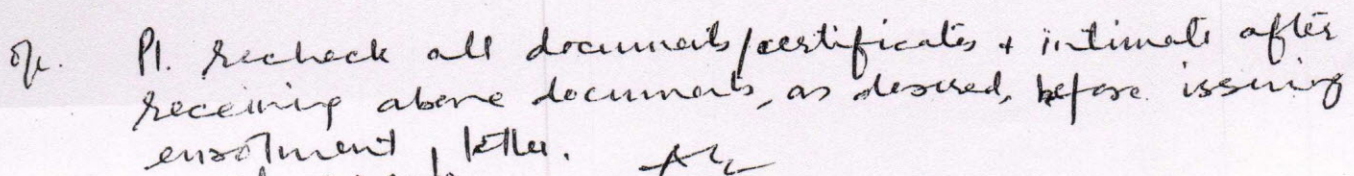 Pl. recheck all documents/certificates + intimate after
receiving above documents, as desired, before issuing
enrolment letter.